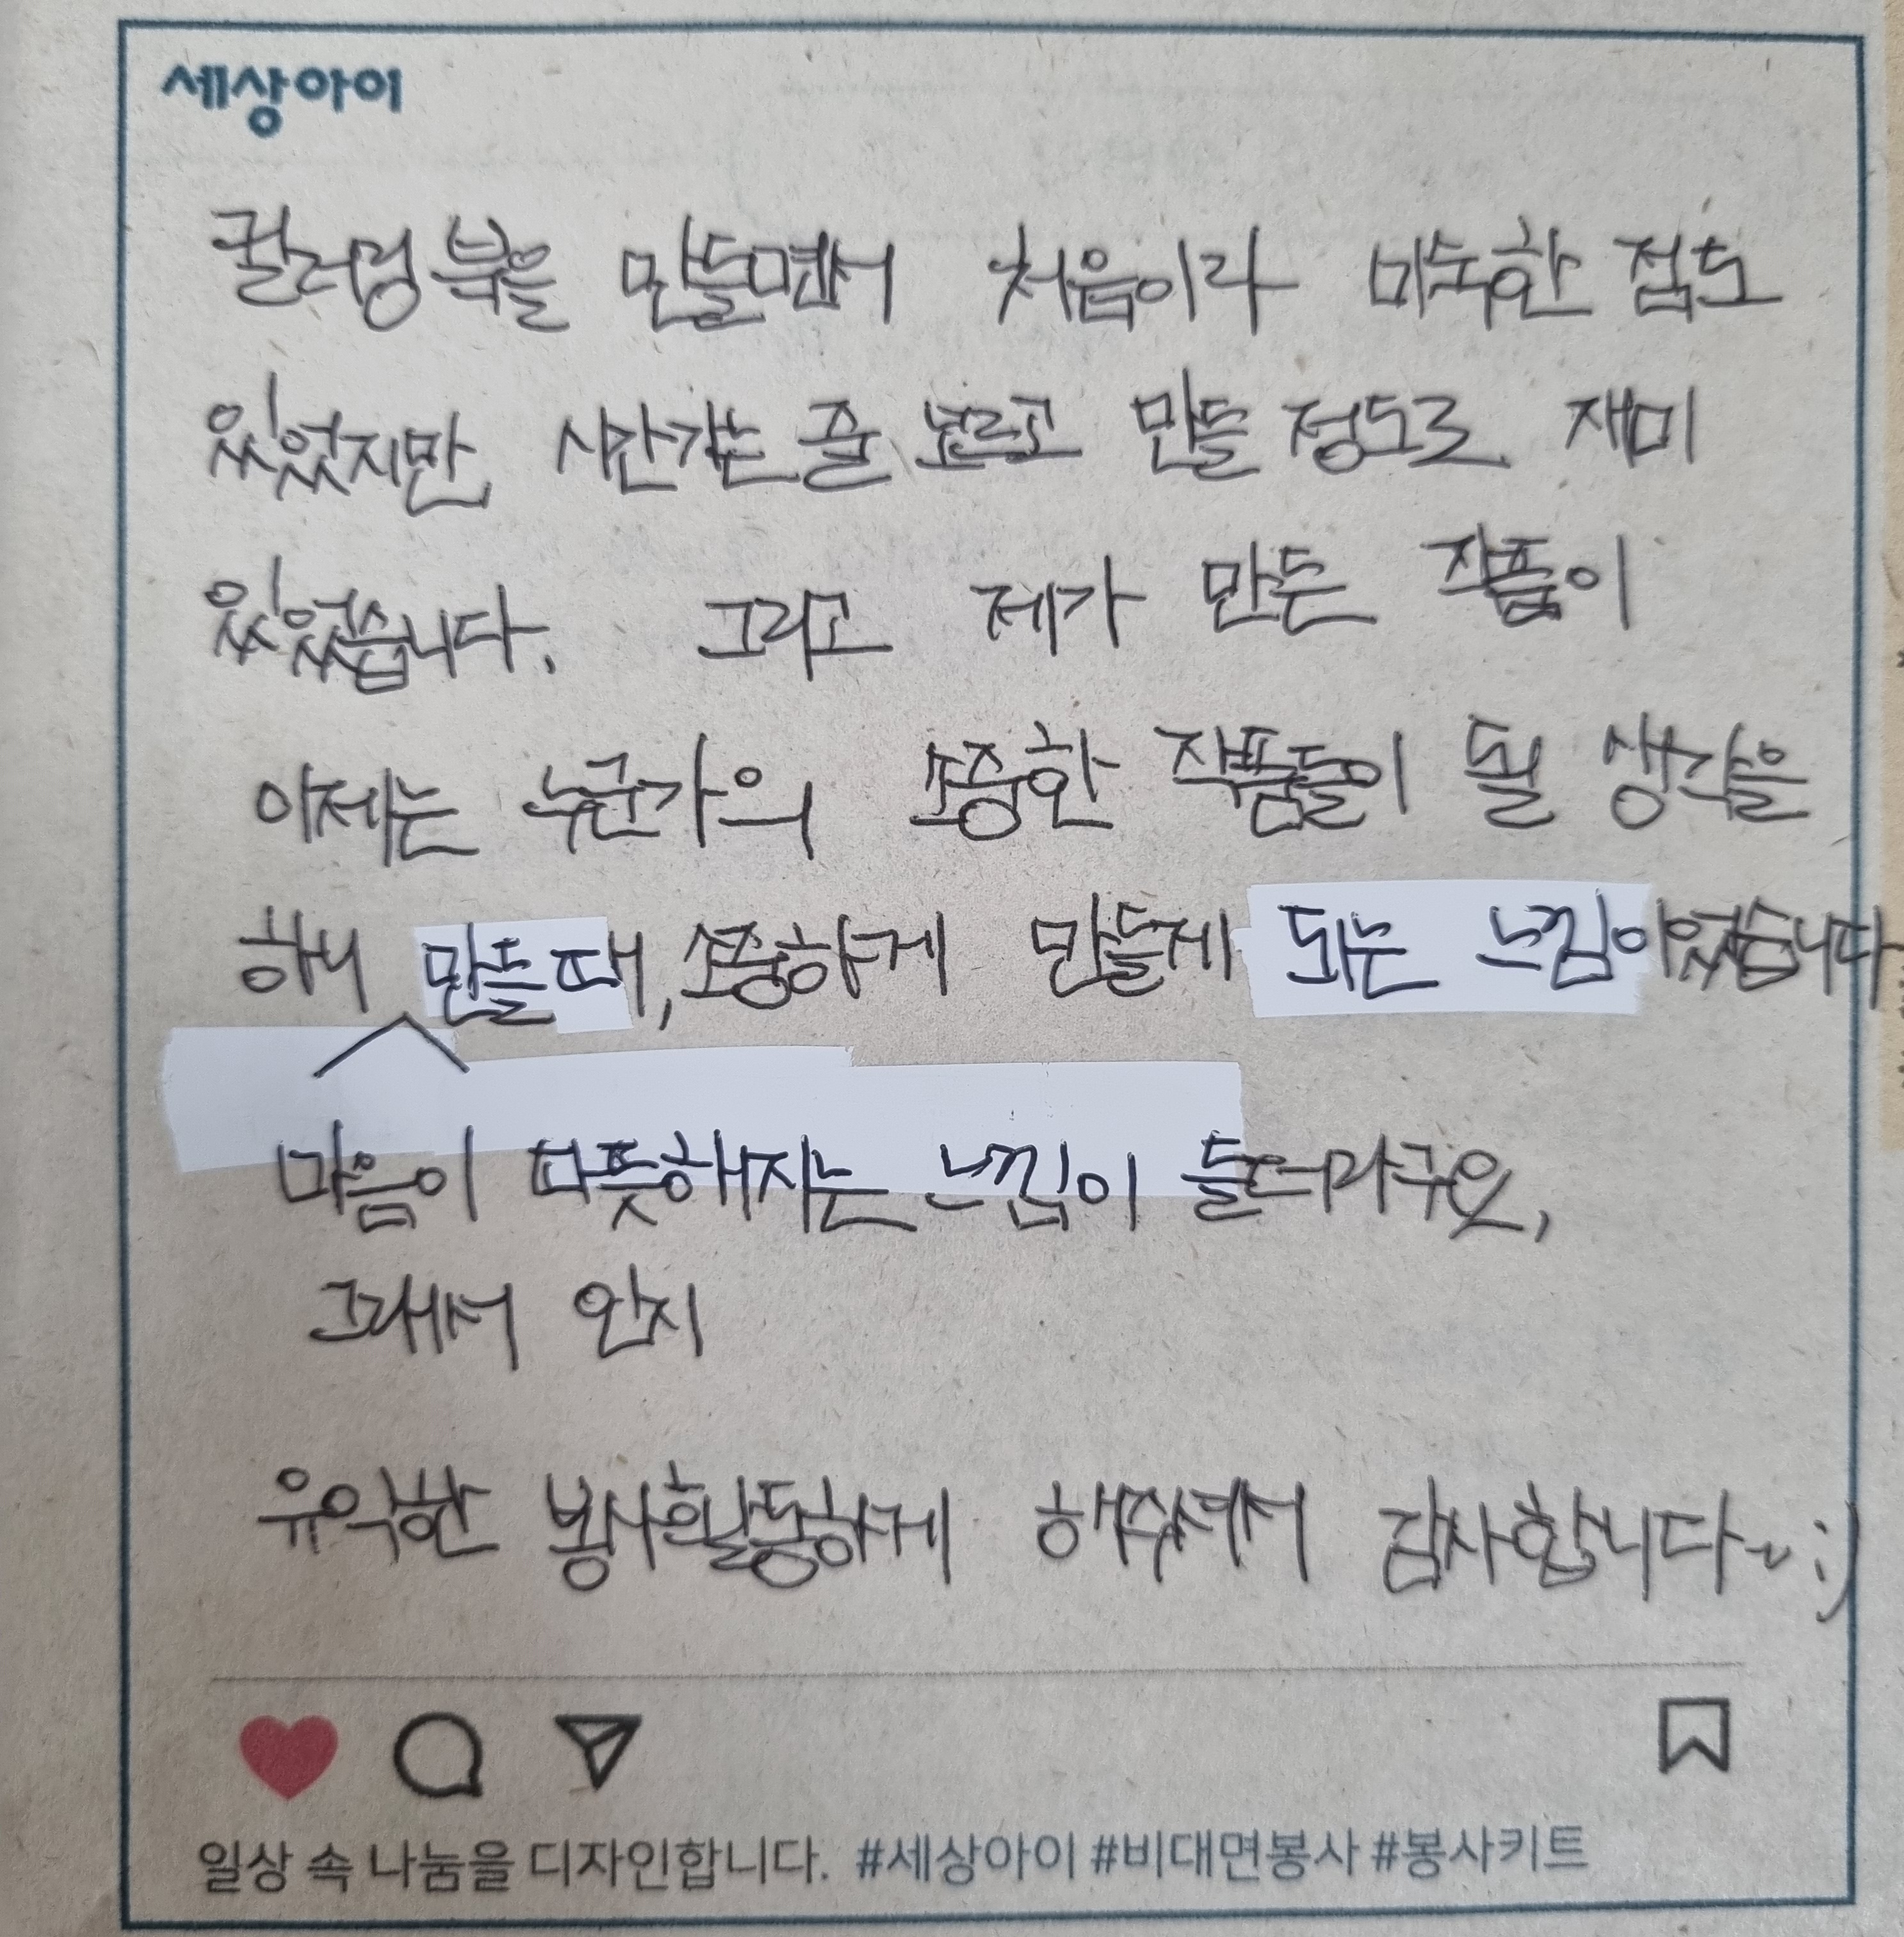 세상아이
컬러링 북을 만들면서 처음이라 미숙한 점도
있었지만, 시간가는 줄 모르고 만들 정도로 재미
있었습니다. 그리고 제가 만든 작품이
이제는 누군가의 소중한 작품들이 될 생각을
하니 만들때, 소중하게 만들게 되는 느낌이었습니다
마음이 따뜻해지는 느낌이 들더라구요,
그래서 인지
유익한 봉사활동하게 해주셔서 감사합니다~:)
일상 속 나눔을 디자인합니다. #세상아이 #비대면봉사 #봉사키트